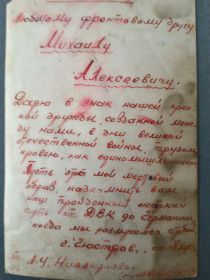 Любимому фронтовому другу
Михаилу
Алексеевичу.
Дарю в знак нашей креп
кой дружбы, созданной меж
ду нами, в дни великой
отечественной войной, трудом,
кровью, как
Пусть этот мой мертвый
образ, напомнит вам
наш пройденный
путь от ДВК до Германии
когда мы
г. Гюстров.